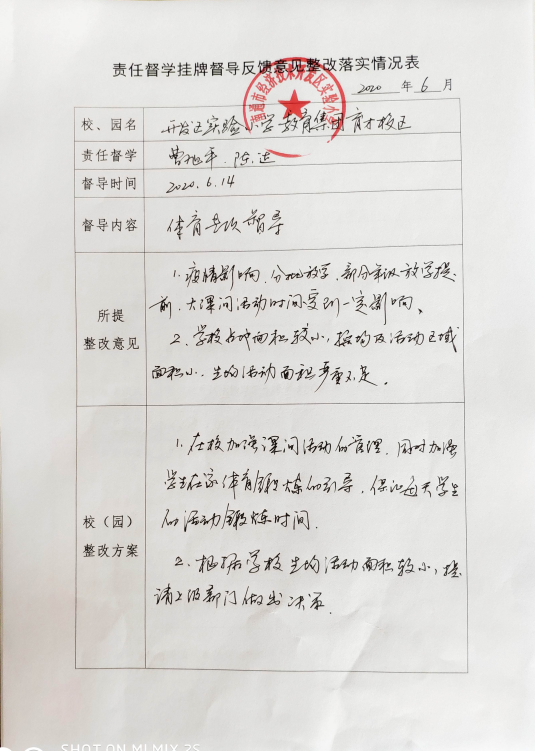 责任督学挂牌督导反馈意见整改落实情况表
南通市经济技术开发区实验小学
2020 年 6 月
校、园名 开发区实验小学教育集团育才校区
责任督学 曹旭平、陈运
督导时间 2020.6.14
督导内容 体育专项督导
所提
整改意见
1. 疫情影响,分批放学,部分年级放学提
前,大课间活动时间受到一定影响。
2. 学校占地面积较小,操场及活动区域
面积小,生均活动面积严重不足。
校(园)
整改方案
1. 在校加强课间活动的管理,同时加强
学生在家体育锻炼的引导,保证每天学生
的活动锻炼时间.
2. 根据学校生均活动面积较小,提
请上级部门做出决策.
SHOT ON MI MIX 2S